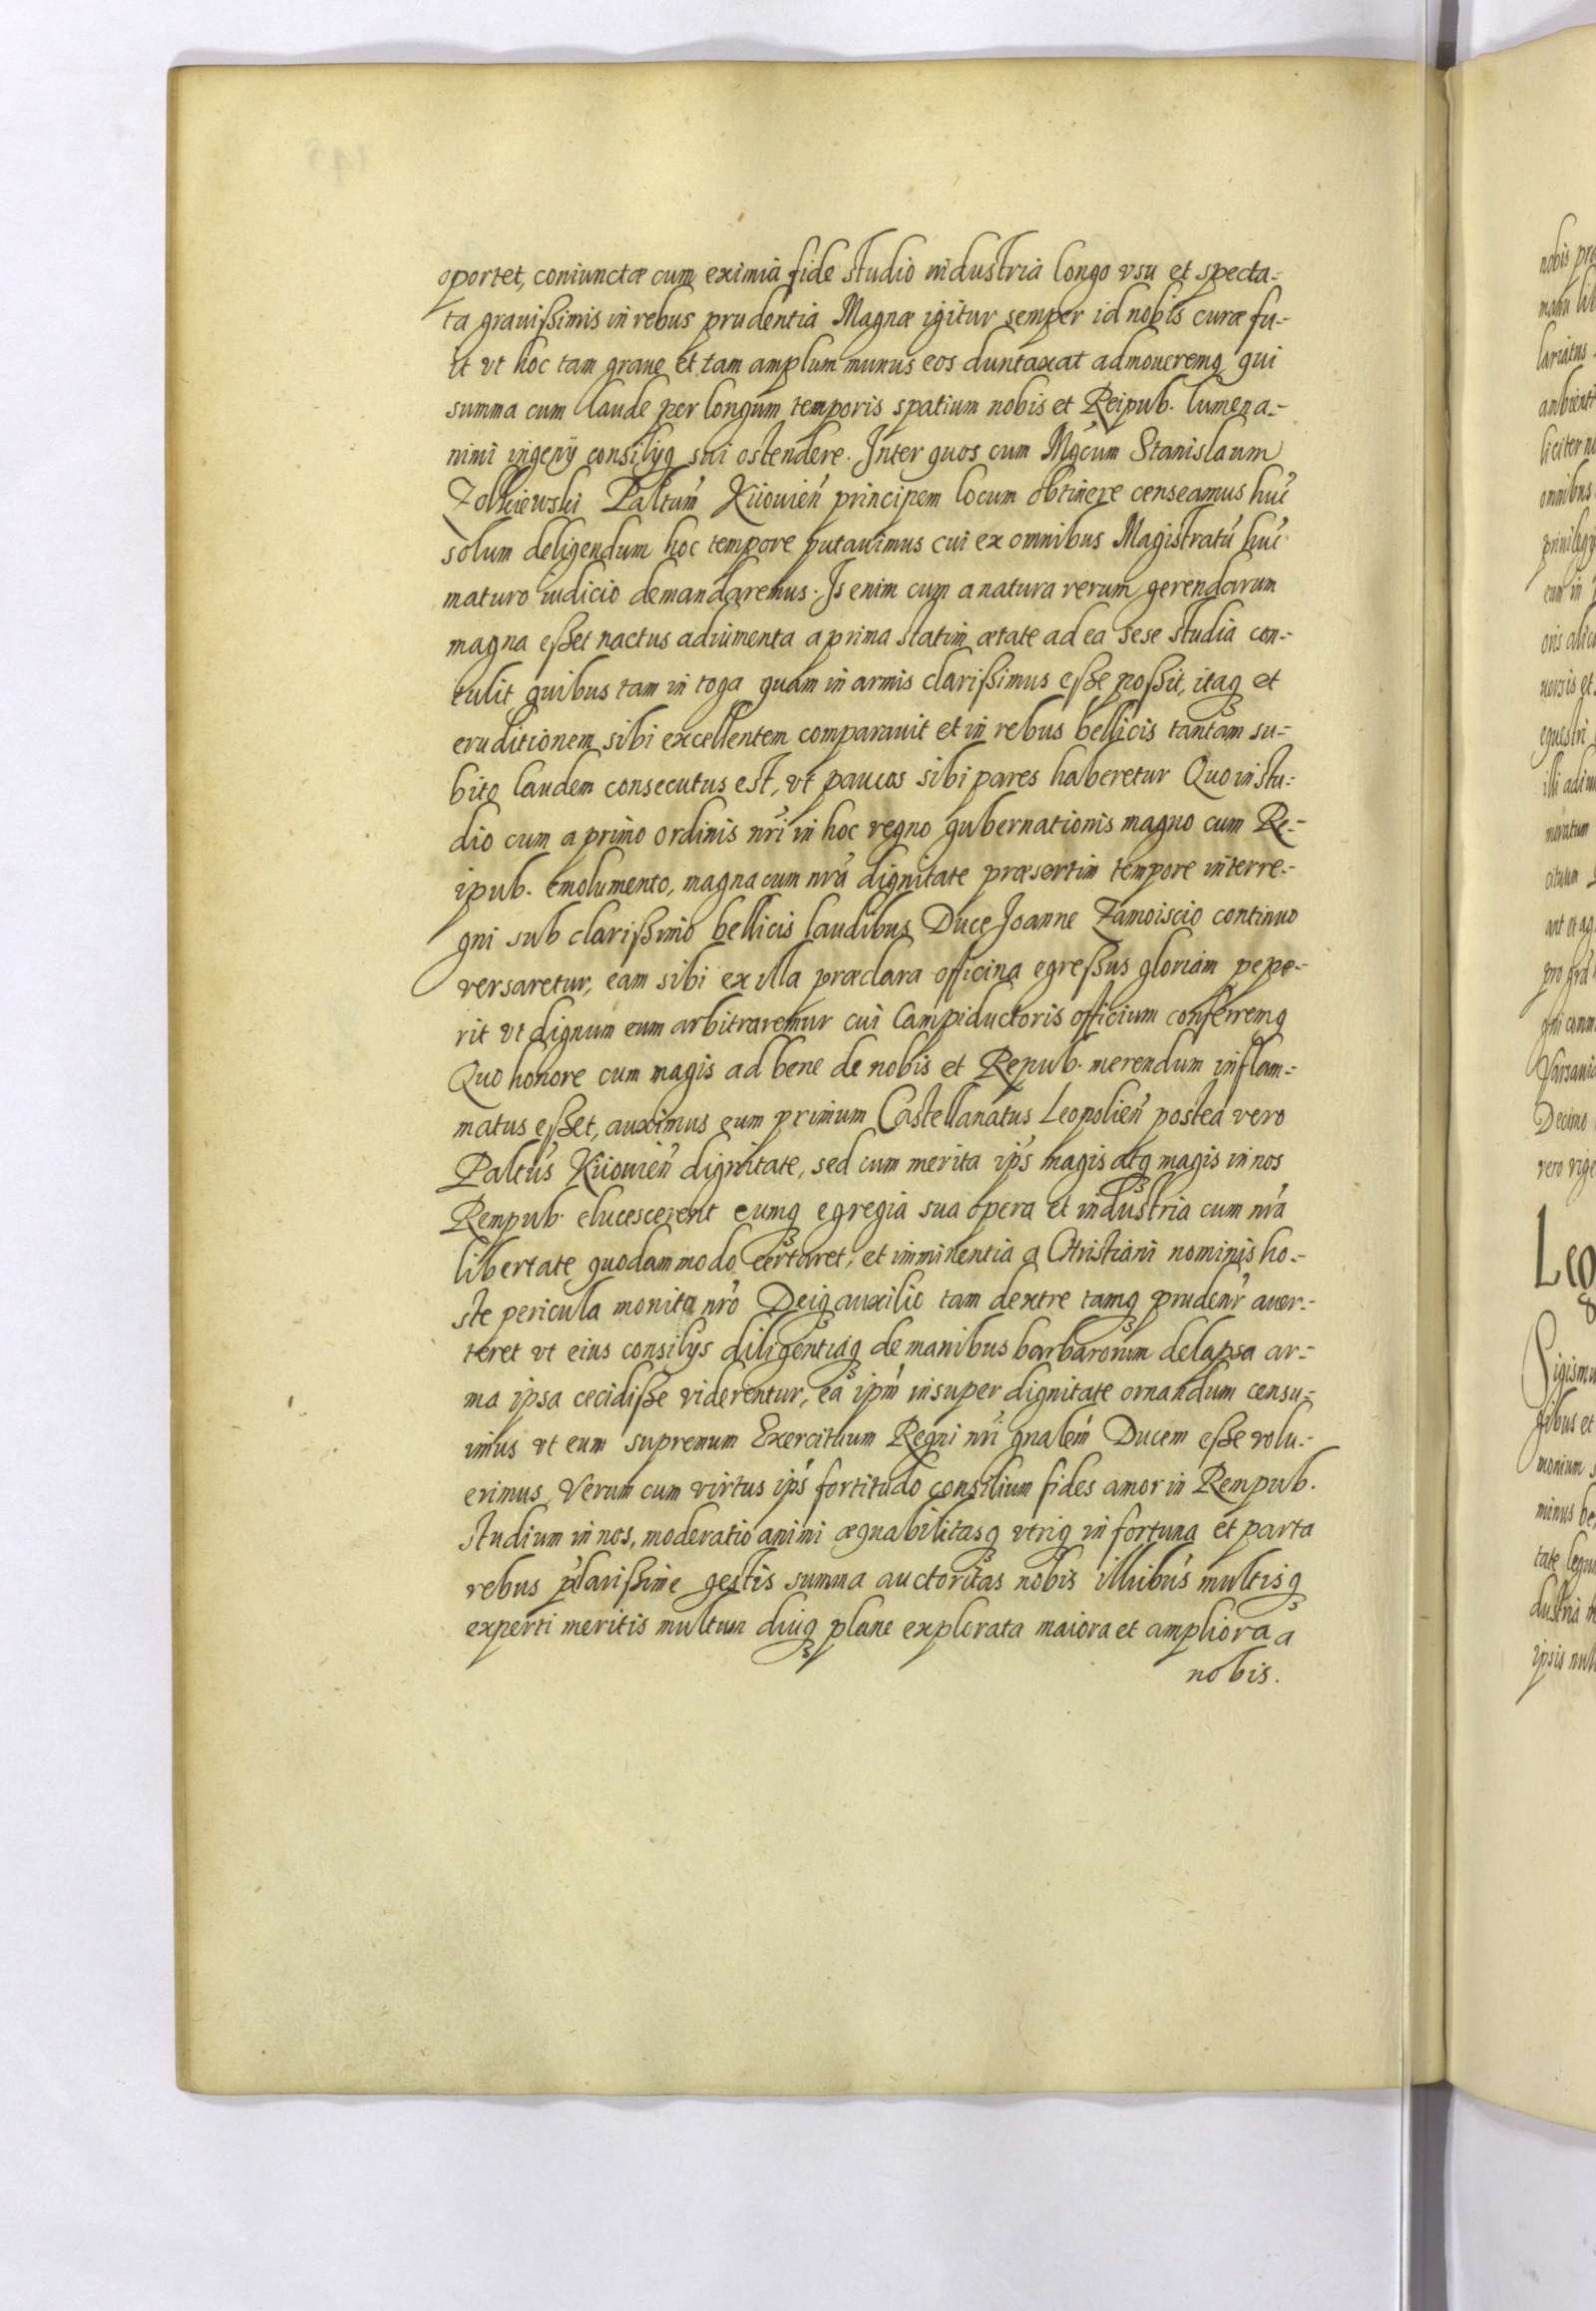 oportet, coniunctæ cum eximia fide studio industria longo vsu et specta-
ta grauißimis in rebus prudentia Magnæ igitur semper id nobis curæ fu-
it vt hoc tam graue et tam amplum munus eos duntaxat admoueremq qui
summa cum laude per longum temporis spatium nobis et Reipub. lumen a-
nimi ingenÿ consilÿq sui ostendere. Inter quos cum Mgcum Stanislaum
Zolkiewski Paltum Kiiouien principem locum obtinere censeamus huc
solum deligendum hoc tempore putauimus cui ex omnibus Magistratu huc
maturo iudicio demandaremus. Is enim cum a natura rerum gerendarum
magna eßet nactus adiumenta a prima statim ætate ad ea sese studia con-
tulit quibus tam in toga quam in armis clarißimus eße poßit, itaq et
eruditionem sibi excellentem comparauit et in rebus bellicis tantam su-
bito laudem consecutus est, vt paucos sibi pares haberetur Quo in stu-
dio cum a primo ordinis nri in hoc regno gubernationis magno cum Re-
ipub. emolumento, magna cum nra dignitate præsertim tempore interre-
gni sub clarißimo bellicis laudibus Duce Joanne Zamoiscio continuo
versaretur, eam sibi ex illa præclara officina egreßus gloriam pepe-
rit vt dignum eum arbitraremur cui Campiductoris officium conferremq
Quo honore cum magis ad bene de nobis et Repub. merendum inflam-
matus eßet, auximus eum primum Castellanatus Leopolien postea vero
Paltus Kiiouien dignitate, sed cum merita ips magis atq magis in nos
Rempub. elucescerent eumq egregia sua opera et industria cum nra
libertate quodammodo certaret, et imminentia a Christiani nominis ho-
ste pericula monita nro Deiq auxilio tam dextre tamq prudenr auer-
teret vt eius consilÿs diligentiaq de manibus barbarorum delapsa ar-
ma ipsa cecidiße viderentur, ea ipm insuper dignitate ornandum censu-
imus vt eum supremum Exercituum Regni nri gnalem Ducem eße volu-
erimus, Verum cum virtus ips fortitudo consilium fides amor in Rempub.
studium in nos, moderatio animi æquabilitasq vtriq in fortuna et parta
rebus plarißime gestis summa auctoritas nobis illuibus multisq
experti meritis multum diuq plane explorata maiora et ampliora a
nobis.